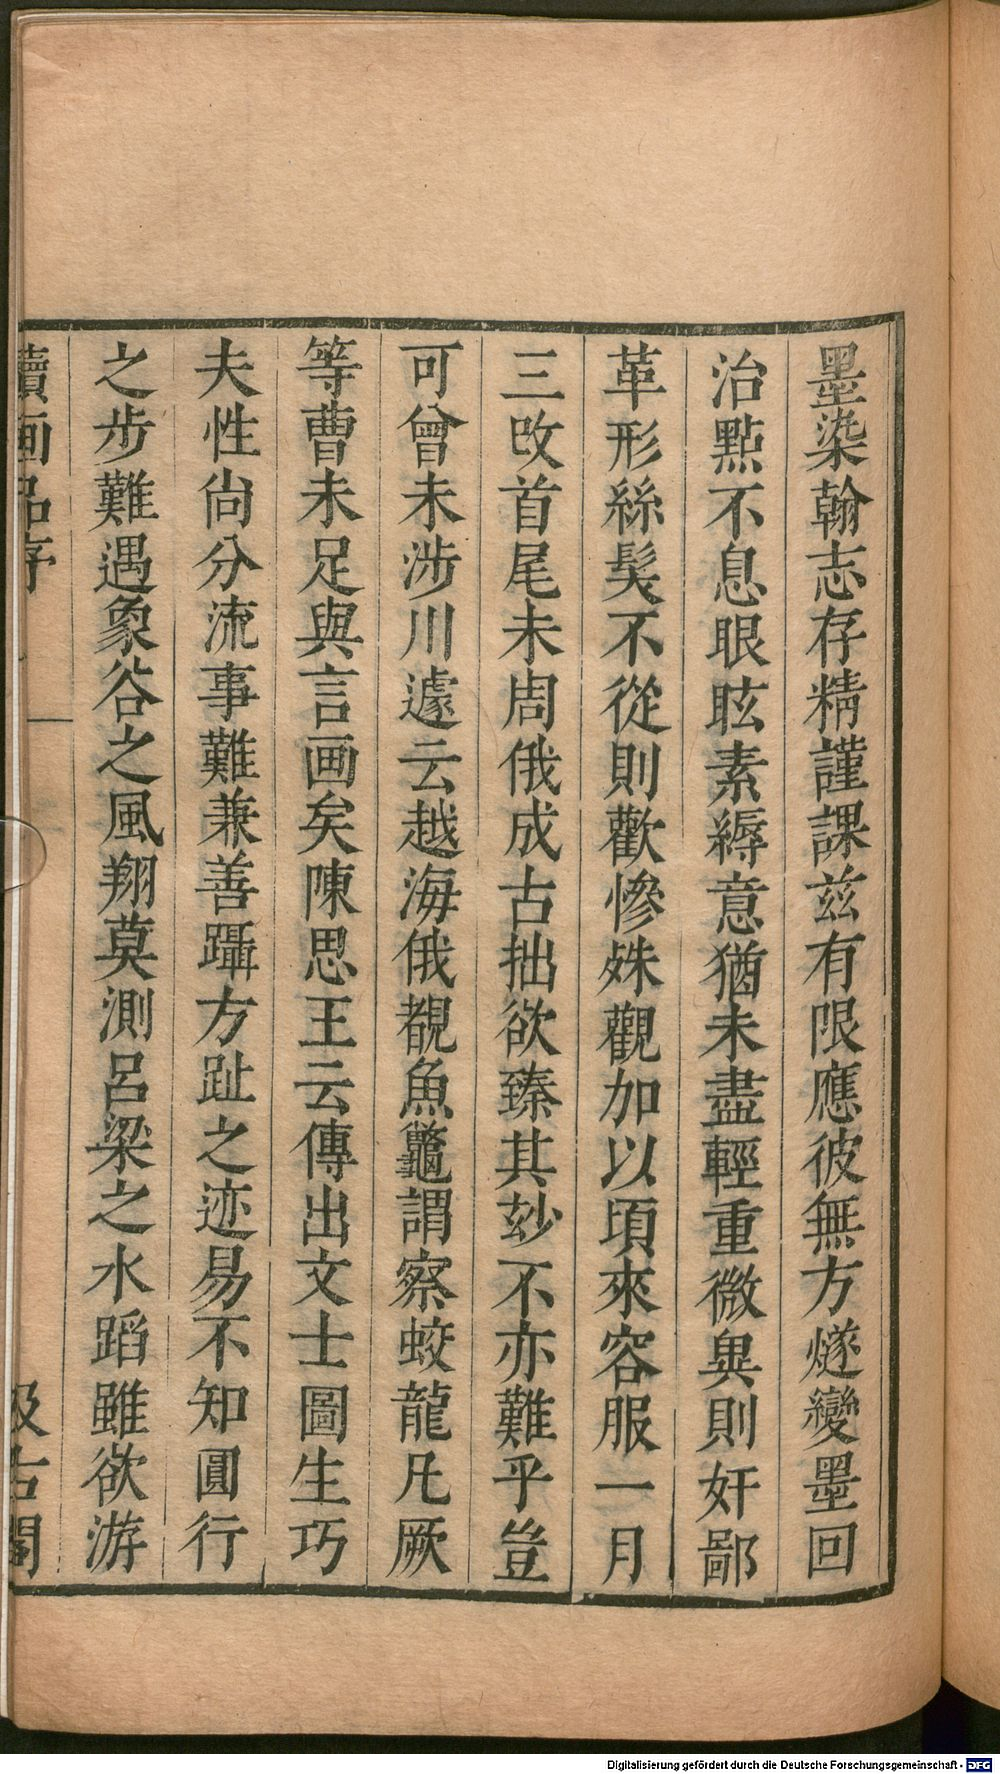 墨染翰志存精謹課茲有限應彼無方燧變墨回
治點不息眼眩素縟意猶未盡輕重微異則奸鄙
革形絲髮不從則歡慘殊觀加以頃來容服一月
三改首尾未周俄成古拙欲臻其玅不亦難乎豈
可曾未涉川遽云越海俄覩魚鼈謂察蛟龍凡厥
等曹未足與言画矣陳思王云傳出文士圖生巧
夫性尙分流事難兼善躡方趾之迹易不知圓行
之步難遇象谷之風翔莫測呂梁之水蹈雖欲游
續画品序
汲古閣
Digitalisierung gefördert durch die Deutsche Forschungsgemeinschaft - DFG